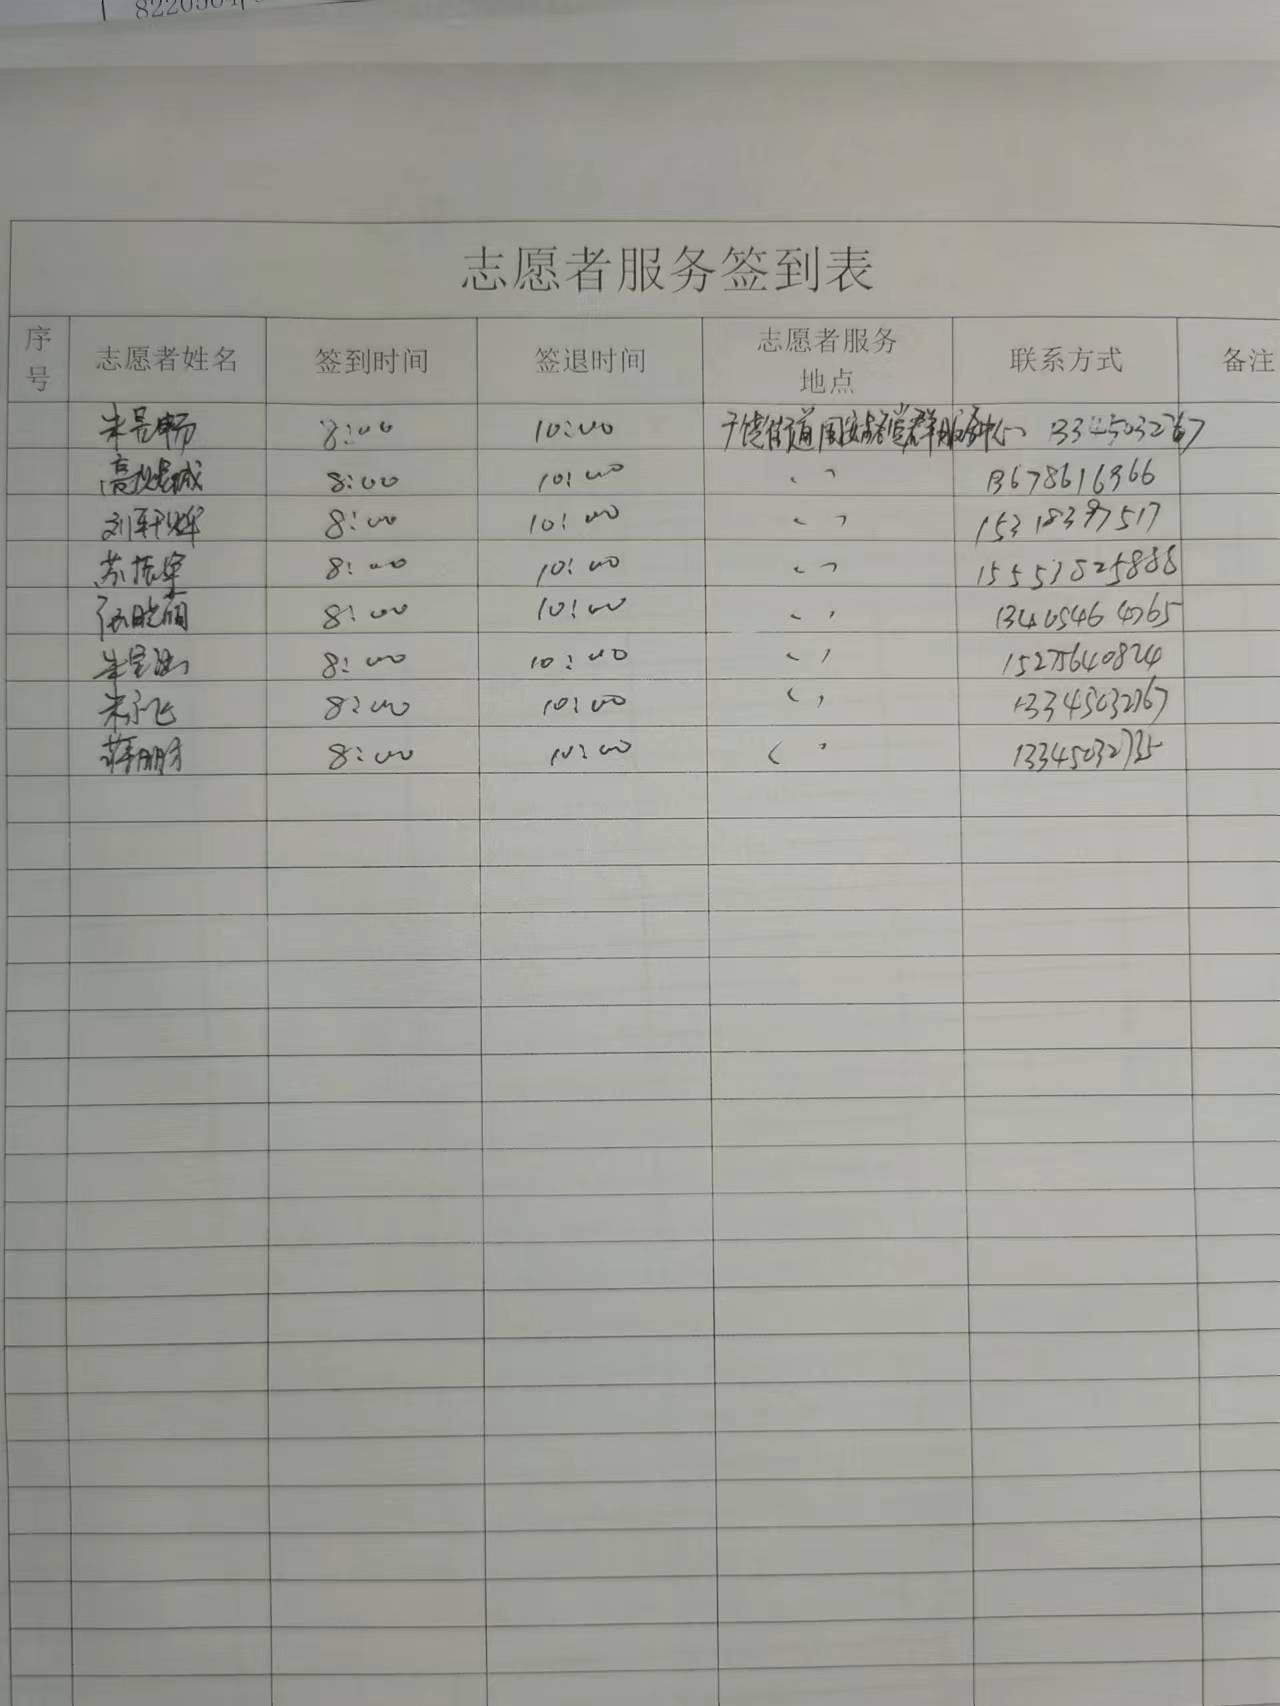 8220504
志愿者服务签到表
序号 志愿者姓名 签到时间 签退时间 志愿者服务地点 联系方式 备注
朱昱畅 8:00 10:00 街道 党群服务中心
高 诚 8:00 10:00 〃 13678616366
刘轩辉 8:00 10:00 〃 15318397517
苏振军 8:00 10:00 〃 15553825888
张晓丽 8:00 10:00 〃 13405464765
朱 8:00 10:00 〃 15275640824
朱 飞 8:00 10:00 〃 13345032767
蒋朋 8:00 10:00 〃 13345032735